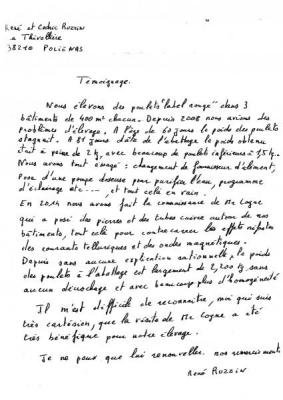 René et Cédric RUZZIN
a Thivollere
38210 POLIENAS
Témoignage.
Nous élevons des poulets "label rouge" dans 3
bâtiments de 400 m² chacun. Depuis 2008 nous avions des
problèmes d'élevage. A l'âge de 60 jours le poids des poulets
stagnait. A 85 jours date de l'abattage le poids obtenu
était à peine de 2 kg, avec beaucoup de poulets inférieurs à 1,5 kg.
Nous avons tout essayé : changement de fournisseur d'aliment,
Pose d'une pompe doseuse pour purifier l'eau, programme
d'éclairage etc...., et tout cela en vain.
En 2014 nous avons fait la connaissance de Mr Cogne
qui a posé des pierres et des tubes cuivre autour de nos
bâtiments, tout cela pour contrecarrer les effets néfastes
des courants telluriques et des ondes magnétiques.
Depuis sans aucune explication rationnelle, le poids
des poulets à l'abattage est largement de 2,200 kg sans
aucun décrochage et avec beaucoup plus d'homogénéité
Il m'est difficile de reconnaitre, moi qui suis
très cartésien, que la visite de Mr Cogne a été
très bénéfique pour notre élevage.
Je ne peux que lui renouveller nos remerciements
René RUZZIN